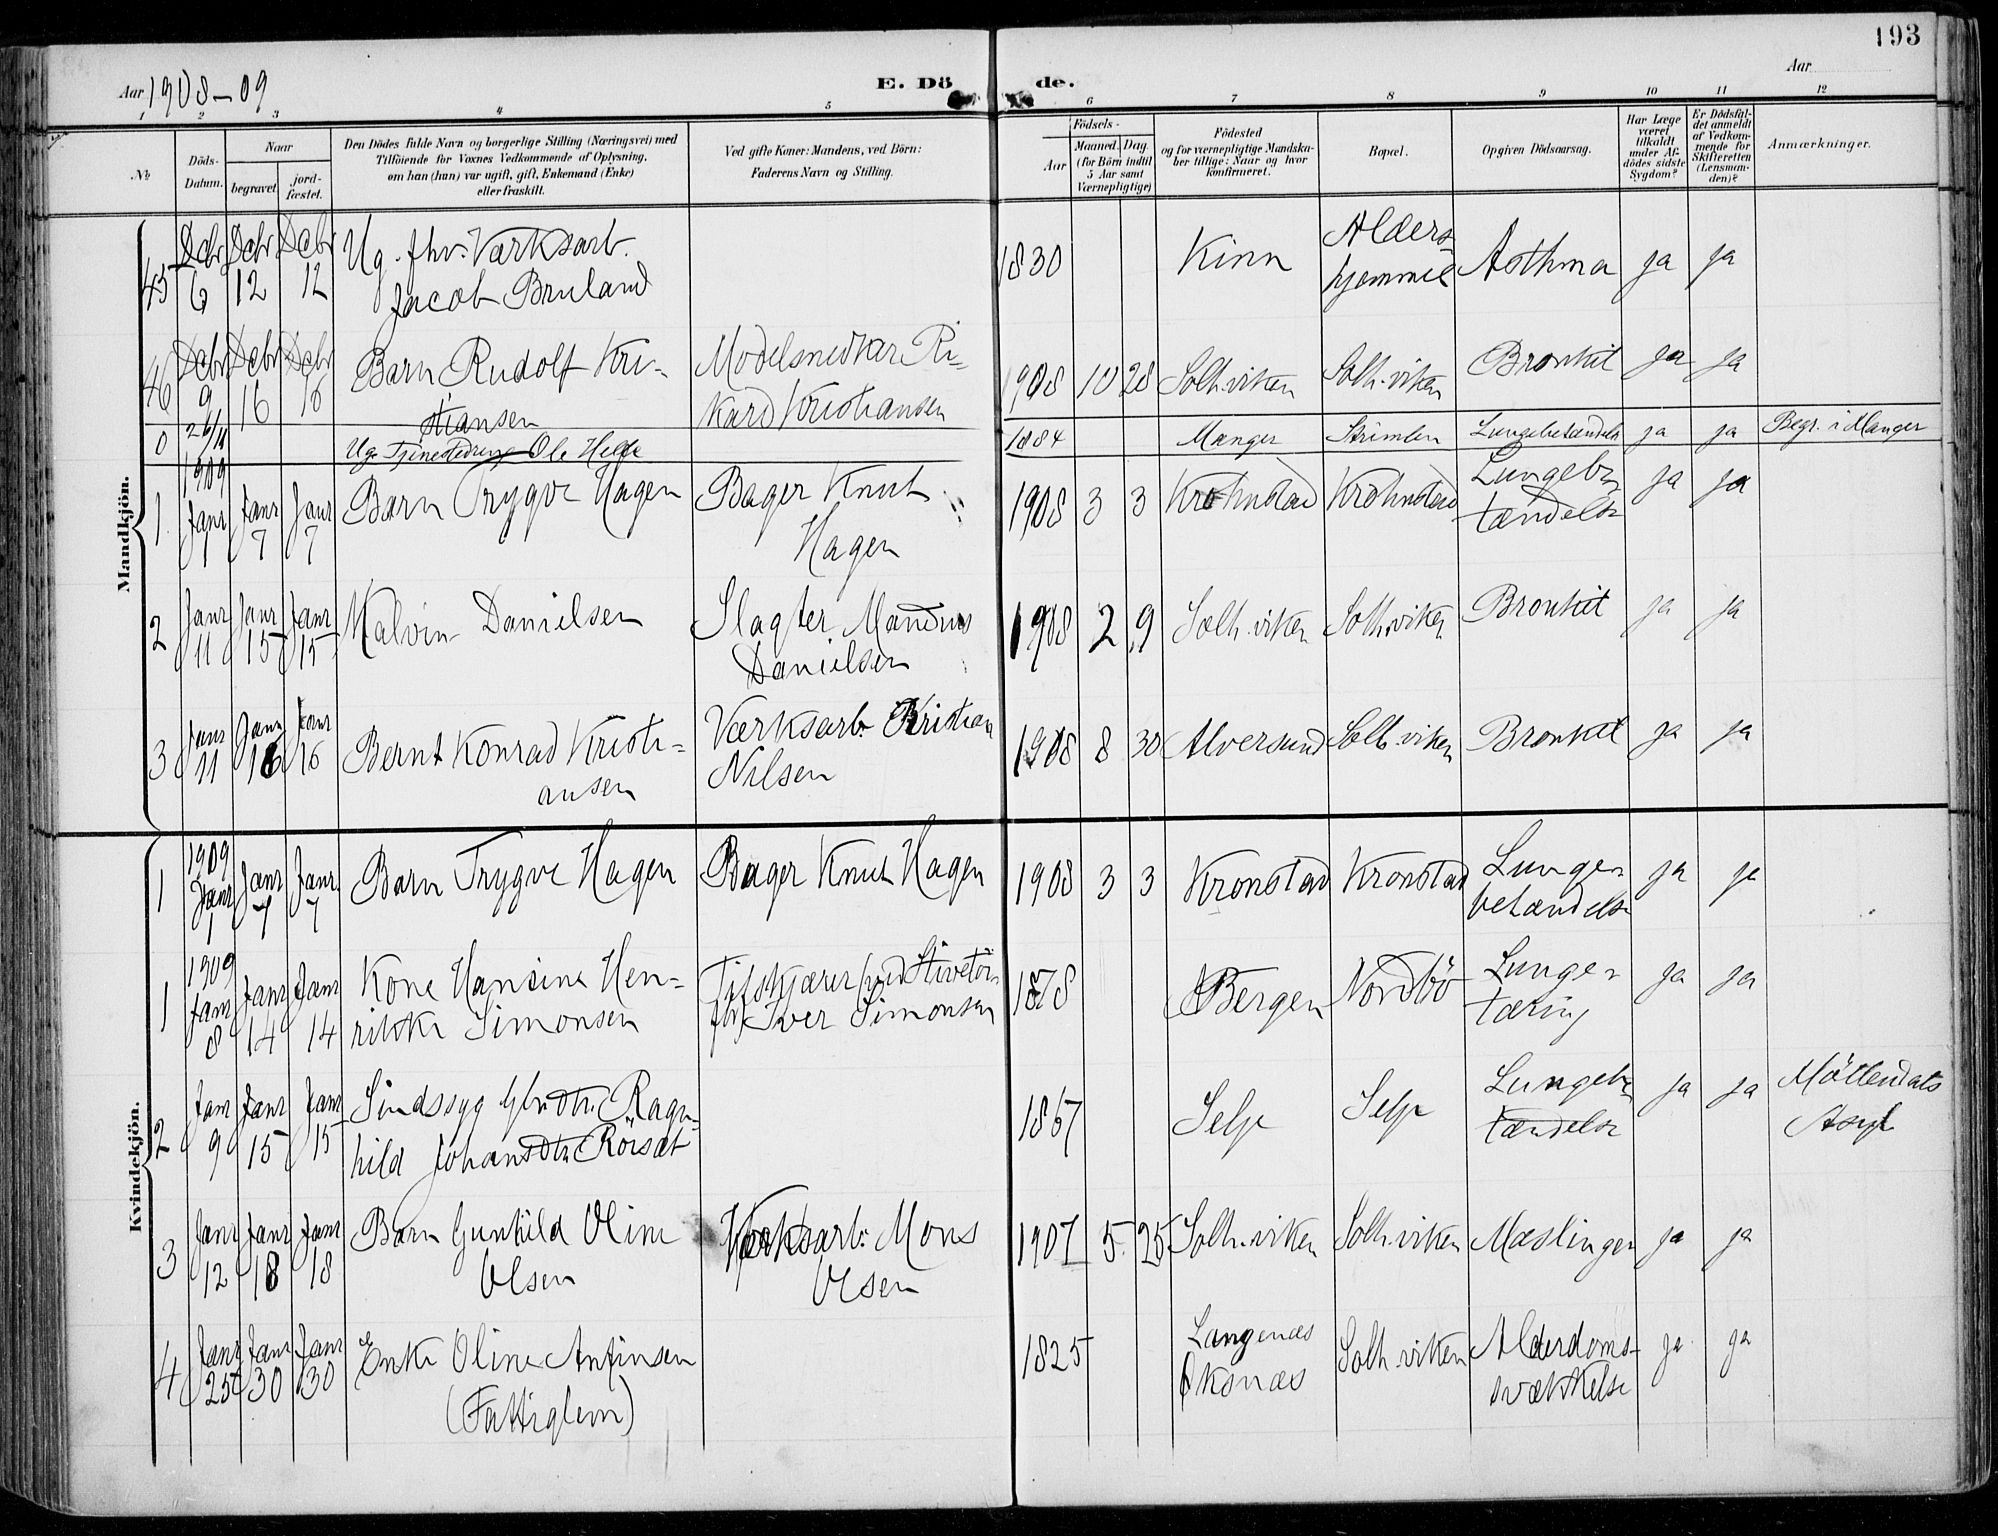 193
Aar 1908-09
E. Dö de.
Aar
1 2 3 4 5 6 7 8 9 10 11 12
№
Döds-
Datum.
Naar
begravet.
jord-
fæstet.
Den Dödes fulde Navn og borgerlige Stilling (Næringsvei) med
Tilföiende for Voxnes Vedkommende af Oplysning,
om han (hun) var ugift, gift, Enkemand (Enke)
eller fraskilt.
Ved gifte Koner: Mandens, ved Börn:
Faderens Navn og Stilling.
Födsels-
Aar
Maaned. Dag.
(for Börn indtil
5 Aar samt
Værnepligtige)
Födested
og for værnepligtige Mandska-
ber tillige: Naar og hvor
konfirmeret.
Bopæl.
Opgiven Dödsaarsag.
Har Læge
været
tilkaldt
under Af-
dödes sidste
Sygdom?
Er Dödsfal-
det anmeldt
af Vedkom-
mende for
Skifteretten
(Lensman-
den)?
Anmærkninger.
Mandkjön.
45 Decbr 6 Decbr 12 Decbr 12 Ug. fhv. Værksarb.
Jacob Bruland
1830 Kinn Alders-
hjemmet Asthma ja ja
46 Decbr 9 Decbr 16 Decbr 16 Barn Rudolf Kri-
stiansen
Modelsnedker Ri-
kard Kristiansen
1908 10 28 Solh.viken Solh.viken Bronkit ja ja
0 26/11 Ug. Tjenestedreng Ole Helle 1884 Manger Lungebetændelse ja ja Begr. i Manger
1909
1 Janr 1 Janr 7 Janr 7 Barn Trygve Hagen Bager Knut
Hagen
1908 3 3 Krohnstad Krohnstad Lungebe
tændelse ja ja
2 Janr 11 Janr 15 Janr 15 Malvin Danielsen Slagter Mandrus
Danielsen
1908 2 9 Solh.viken Solh.viken Bronkit ja ja
3 Janr 11 Janr 16 Janr 16 Bernt Konrad Kristi-
ansen
Værksarb. Kristian
Nilsen
1908 8 30 Alversund Solh.viken Bronkit ja ja
Kvindekjön.
1909
1 Janr 1 Janr 7 Janr 7 Barn Trygve Hagen Bager Knut Hagen 1908 3 3 Kronstad Kronstad Lunge-
betændelse ja ja
1909
1 Janr 8 Janr 14 Janr 14 Kone Hansine Hen-
rikke Simonsen
Iver Simonsen
1878 Bergen Nordbö Lunge-
tæring ja ja
2 Janr 9 Janr 15 Janr 15 Sindssyg Gbrdtr. Ragn-
hild Johansdtr. Rörsæt
1867 Selje Selje Lungebe-
tændelse ja ja Möllendals
Asyl
3 Janr 12 Janr 18 Janr 18 Barn Gunhild Oline
Olsen
Værksarb. Mons
Olsen
1907 5 25 Solh.viken Solh.viken Mæslinger ja ja
4 Janr 25 Janr 30 Janr 30 Enke Oline Anfinsen
(Fattiglem)
1825 Langenæs
Öksnæs Solh.viken Alderdoms-
svækkelse ja ja